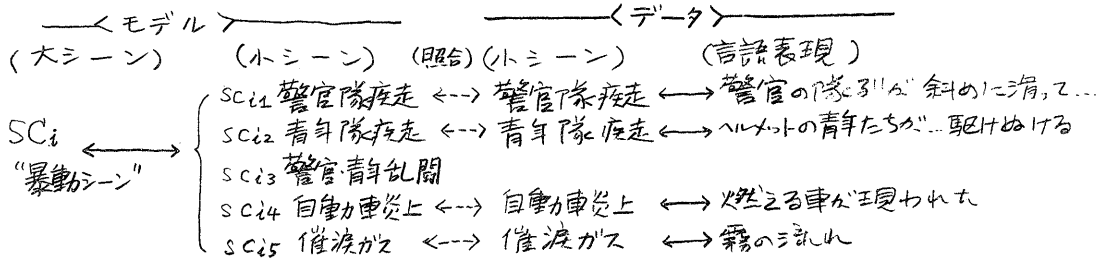 〈モデル〉 〈データ〉
(大シーン) (小シーン) (照合) (小シーン) (言語表現)
sci1 警官隊疾走 <--> 警官隊疾走 <—> 警官の隊列が斜めに滑って...
SCi <—> sci2 青年隊疾走 <--> 青年隊疾走 <—> ヘルメットの青年たちが...駆けぬける
“暴動シーン” sci3 警官・青年乱闘
sci4 自動車炎上 <--> 自動車炎上 <—> 燃える車が現われた
sci5 催涙ガス <--> 催涙ガス <—> 霧の流れ